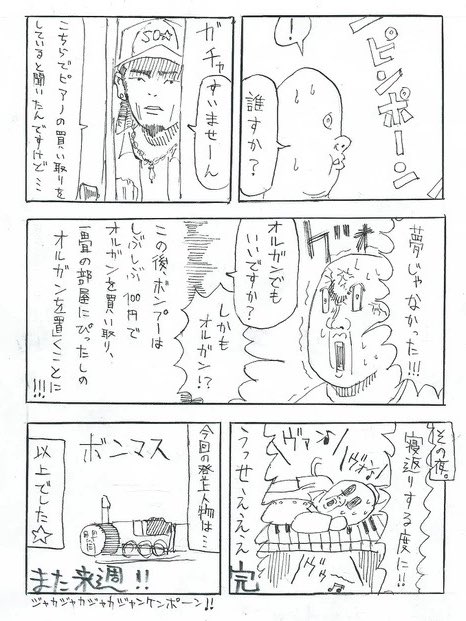 ピンポーン
!
誰すか?
ガチャ
すいませーん
SO☆
こちらでピアノの買い取りを
していると聞いたんですけど…
夢じゃなかった!!!
オルガンでも
いいですか?
しかも
オルガン!?
この後ボンプーは
しぶしぶ100円で
オルガンを買い取り、
一畳の部屋にぴったしの
オルガンを置くことに
!!!
その夜。
寝返りする度に!!
ヴァン♪
ヴォン♪
うっせぇえええ
完
今回の登場人物は…
ボンマス
以上でした☆
また来週!!
ジャカジャカジャカジャンケンポーン!!